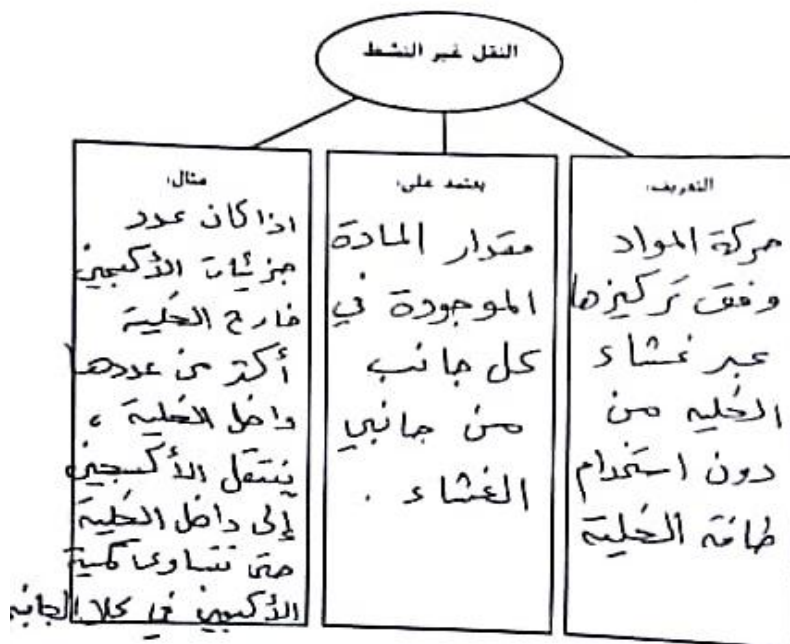 النقل غير النشط
التعريف:
حركة المواد
وفق تركيزها
عبر غشاء
الخليه من
دون استخدام
طاقة الخلية
يعتمد على:
مقدار المادة
الموجودة في
كل جانب
من جانبي
الغشاء .
مثال:
اذا كان عدد
جزئيات الأكسجين
خارج الخلية
أكثر من عددها
داخل الخلية ،
ينتقل الأكسجين
إلى داخل الخلية
حتى تتساوى كمية
الأكسجين في كلا الجانب